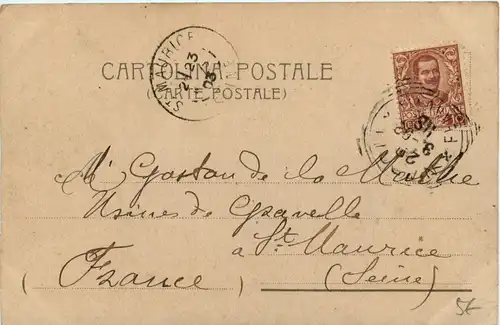 ST MAURICE
23
03
CARTOLINA POSTALE
(CARTE POSTALE)
Mr Gaston de la Mothe
Usines de Gravelle
à St Maurice
(France) (Seine)
5f